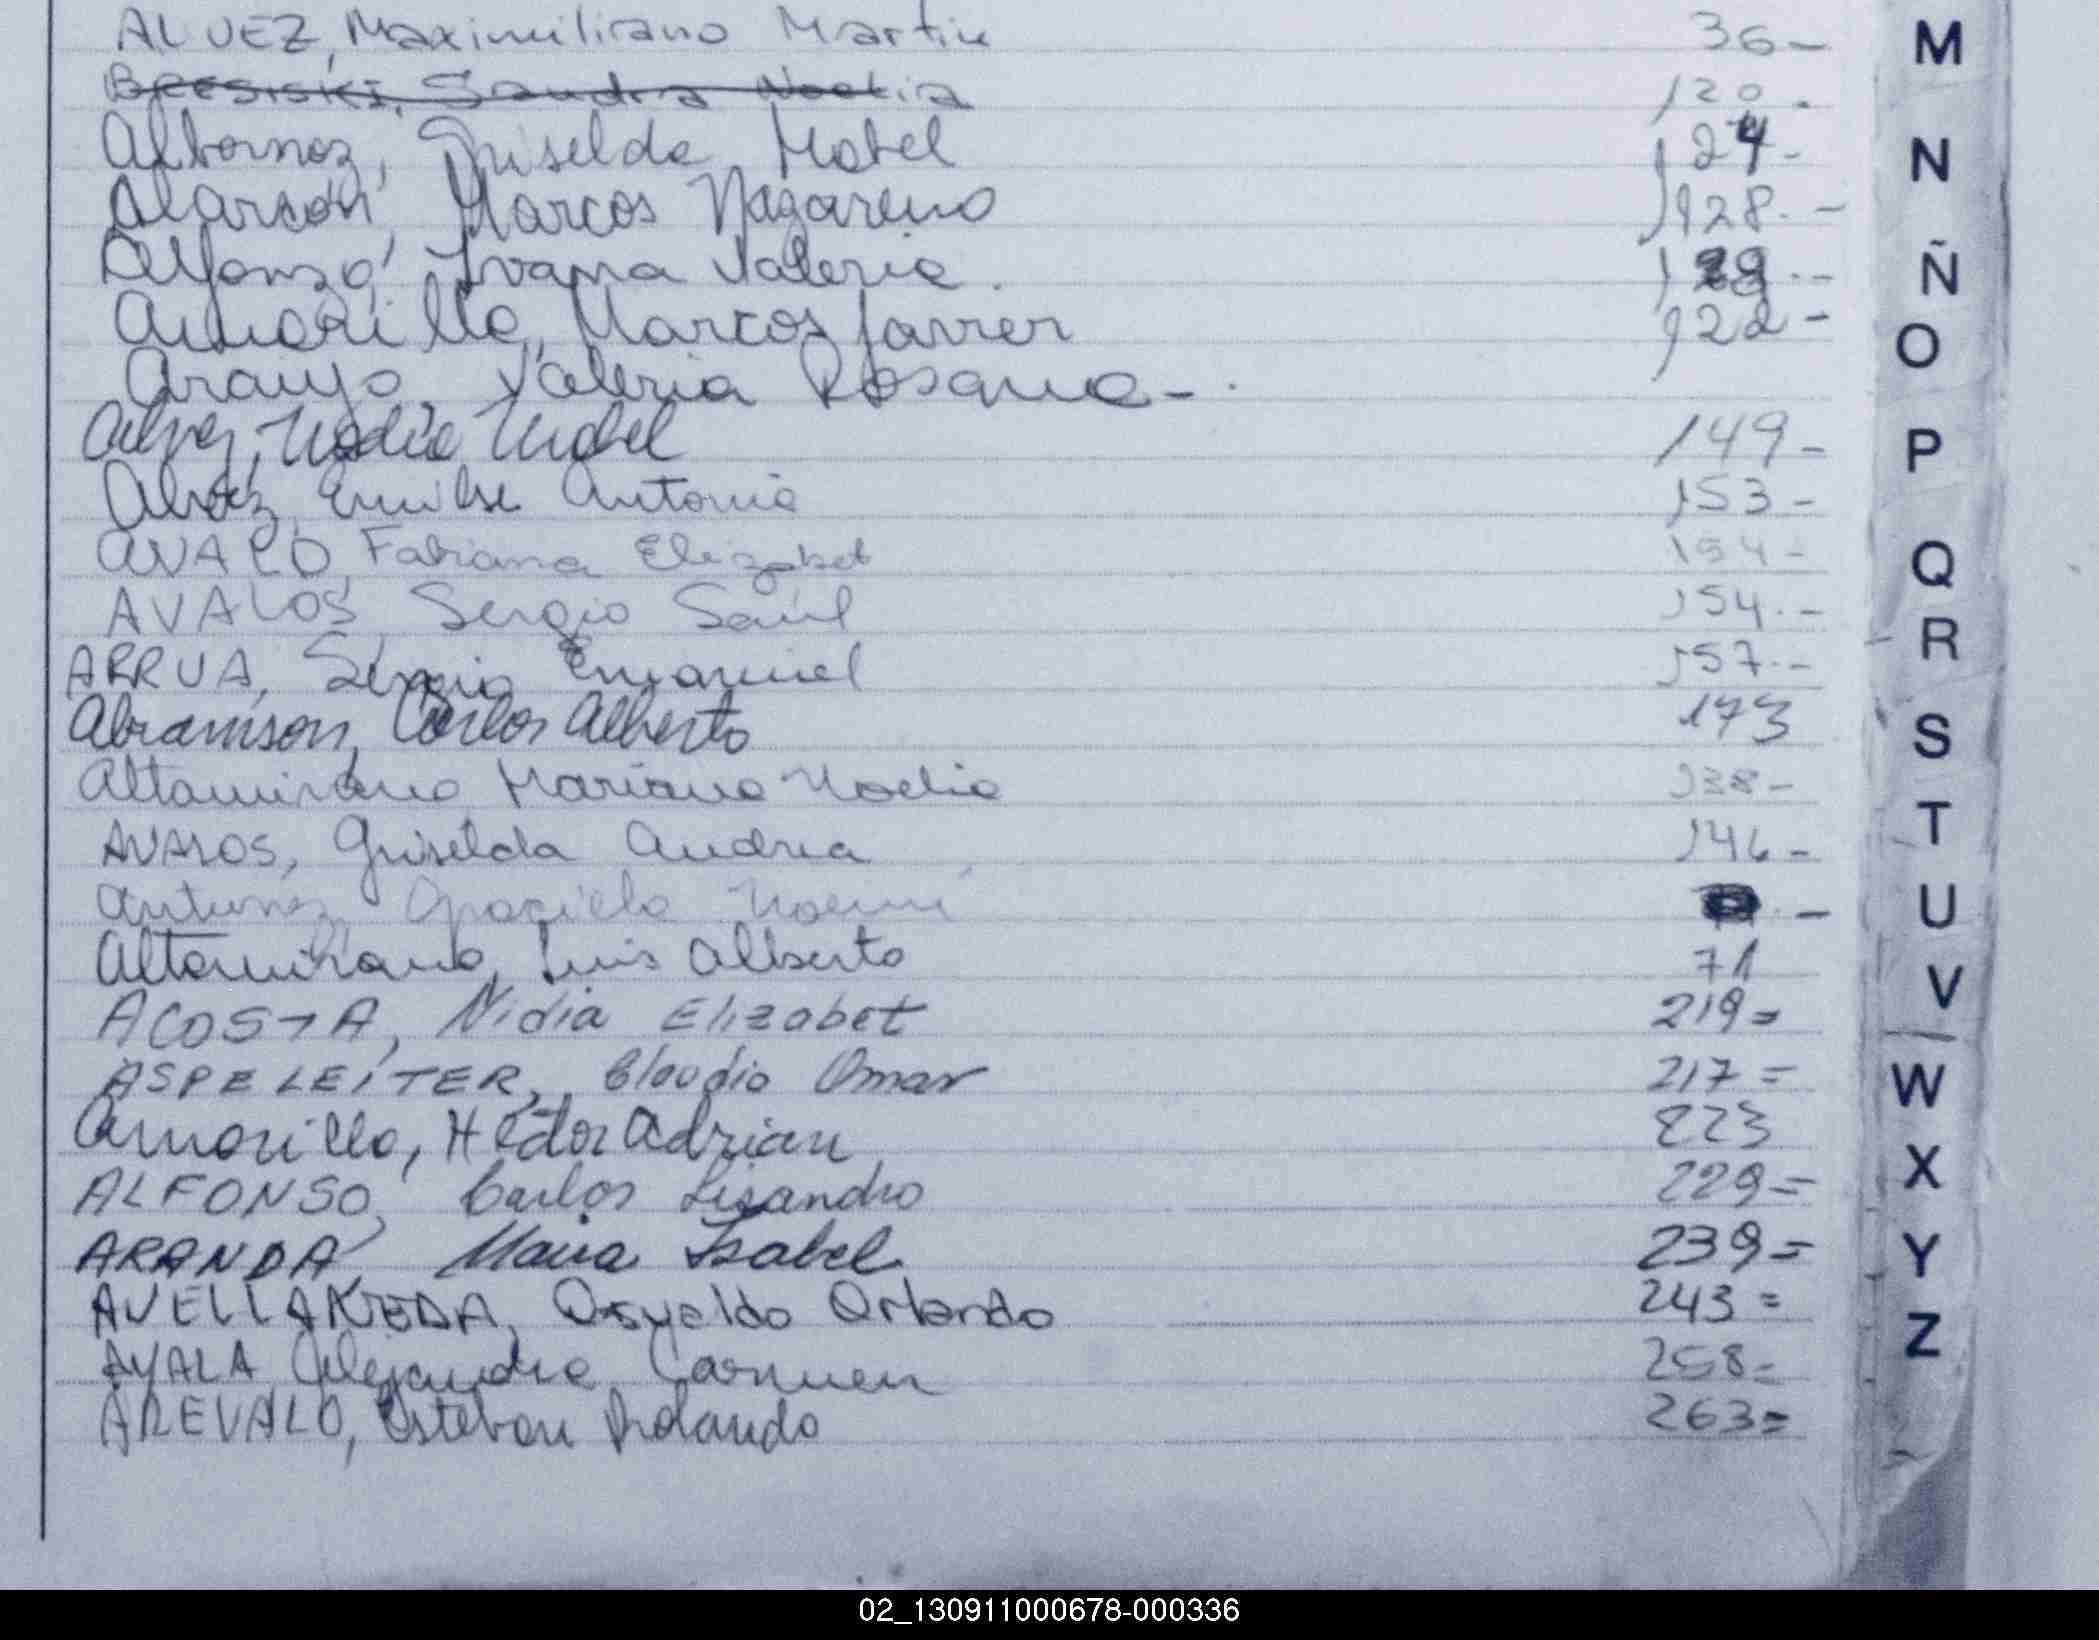 ALVEZ, Maximiliano Martin 36-
BRESISKI, Sandra Noelia 120.
Albornoz, Griselda Mabel 124-
Alarcón, Marcos Nazareno 128.-
Alfonzo, Ivana Valeria. 129.-
Amarilla, Marcos Javier 122-
Araujo, Valeria Rosana-.
Alvez, Nadia Mabel 149-
Alvez, Emilse Antonia 153-
AVALO, Fabiana Elizabet 154-
AVALOS, Sergio Saúl 154.-
ARRUA, Sergio Emanuel 157.-
Abramson, Carlos Alberto 173
Altamirano Mariana Noelia 138-
AVALOS, Griselda Andrea 146-
Antunez Graciela Noemi .-
Altamirano, Luis Alberto 71
ACOSTA, Nidia Elizabet 219=
ASPELEITER, Claudio Omar 217=
Amarilla, Héctor Adrian 223
ALFONSO, Carlos Lisandro 229=
ARANDA, Maria Isabel 239=
AVELLANEDA, Osvaldo Orlando 243=
AYALA Alejandra Carmen 258=
AREVALO, Esteban Rolando 263=
M
N
Ñ
O
P
Q
R
S
T
U
V
W
X
Y
Z
02_130911000678-000336